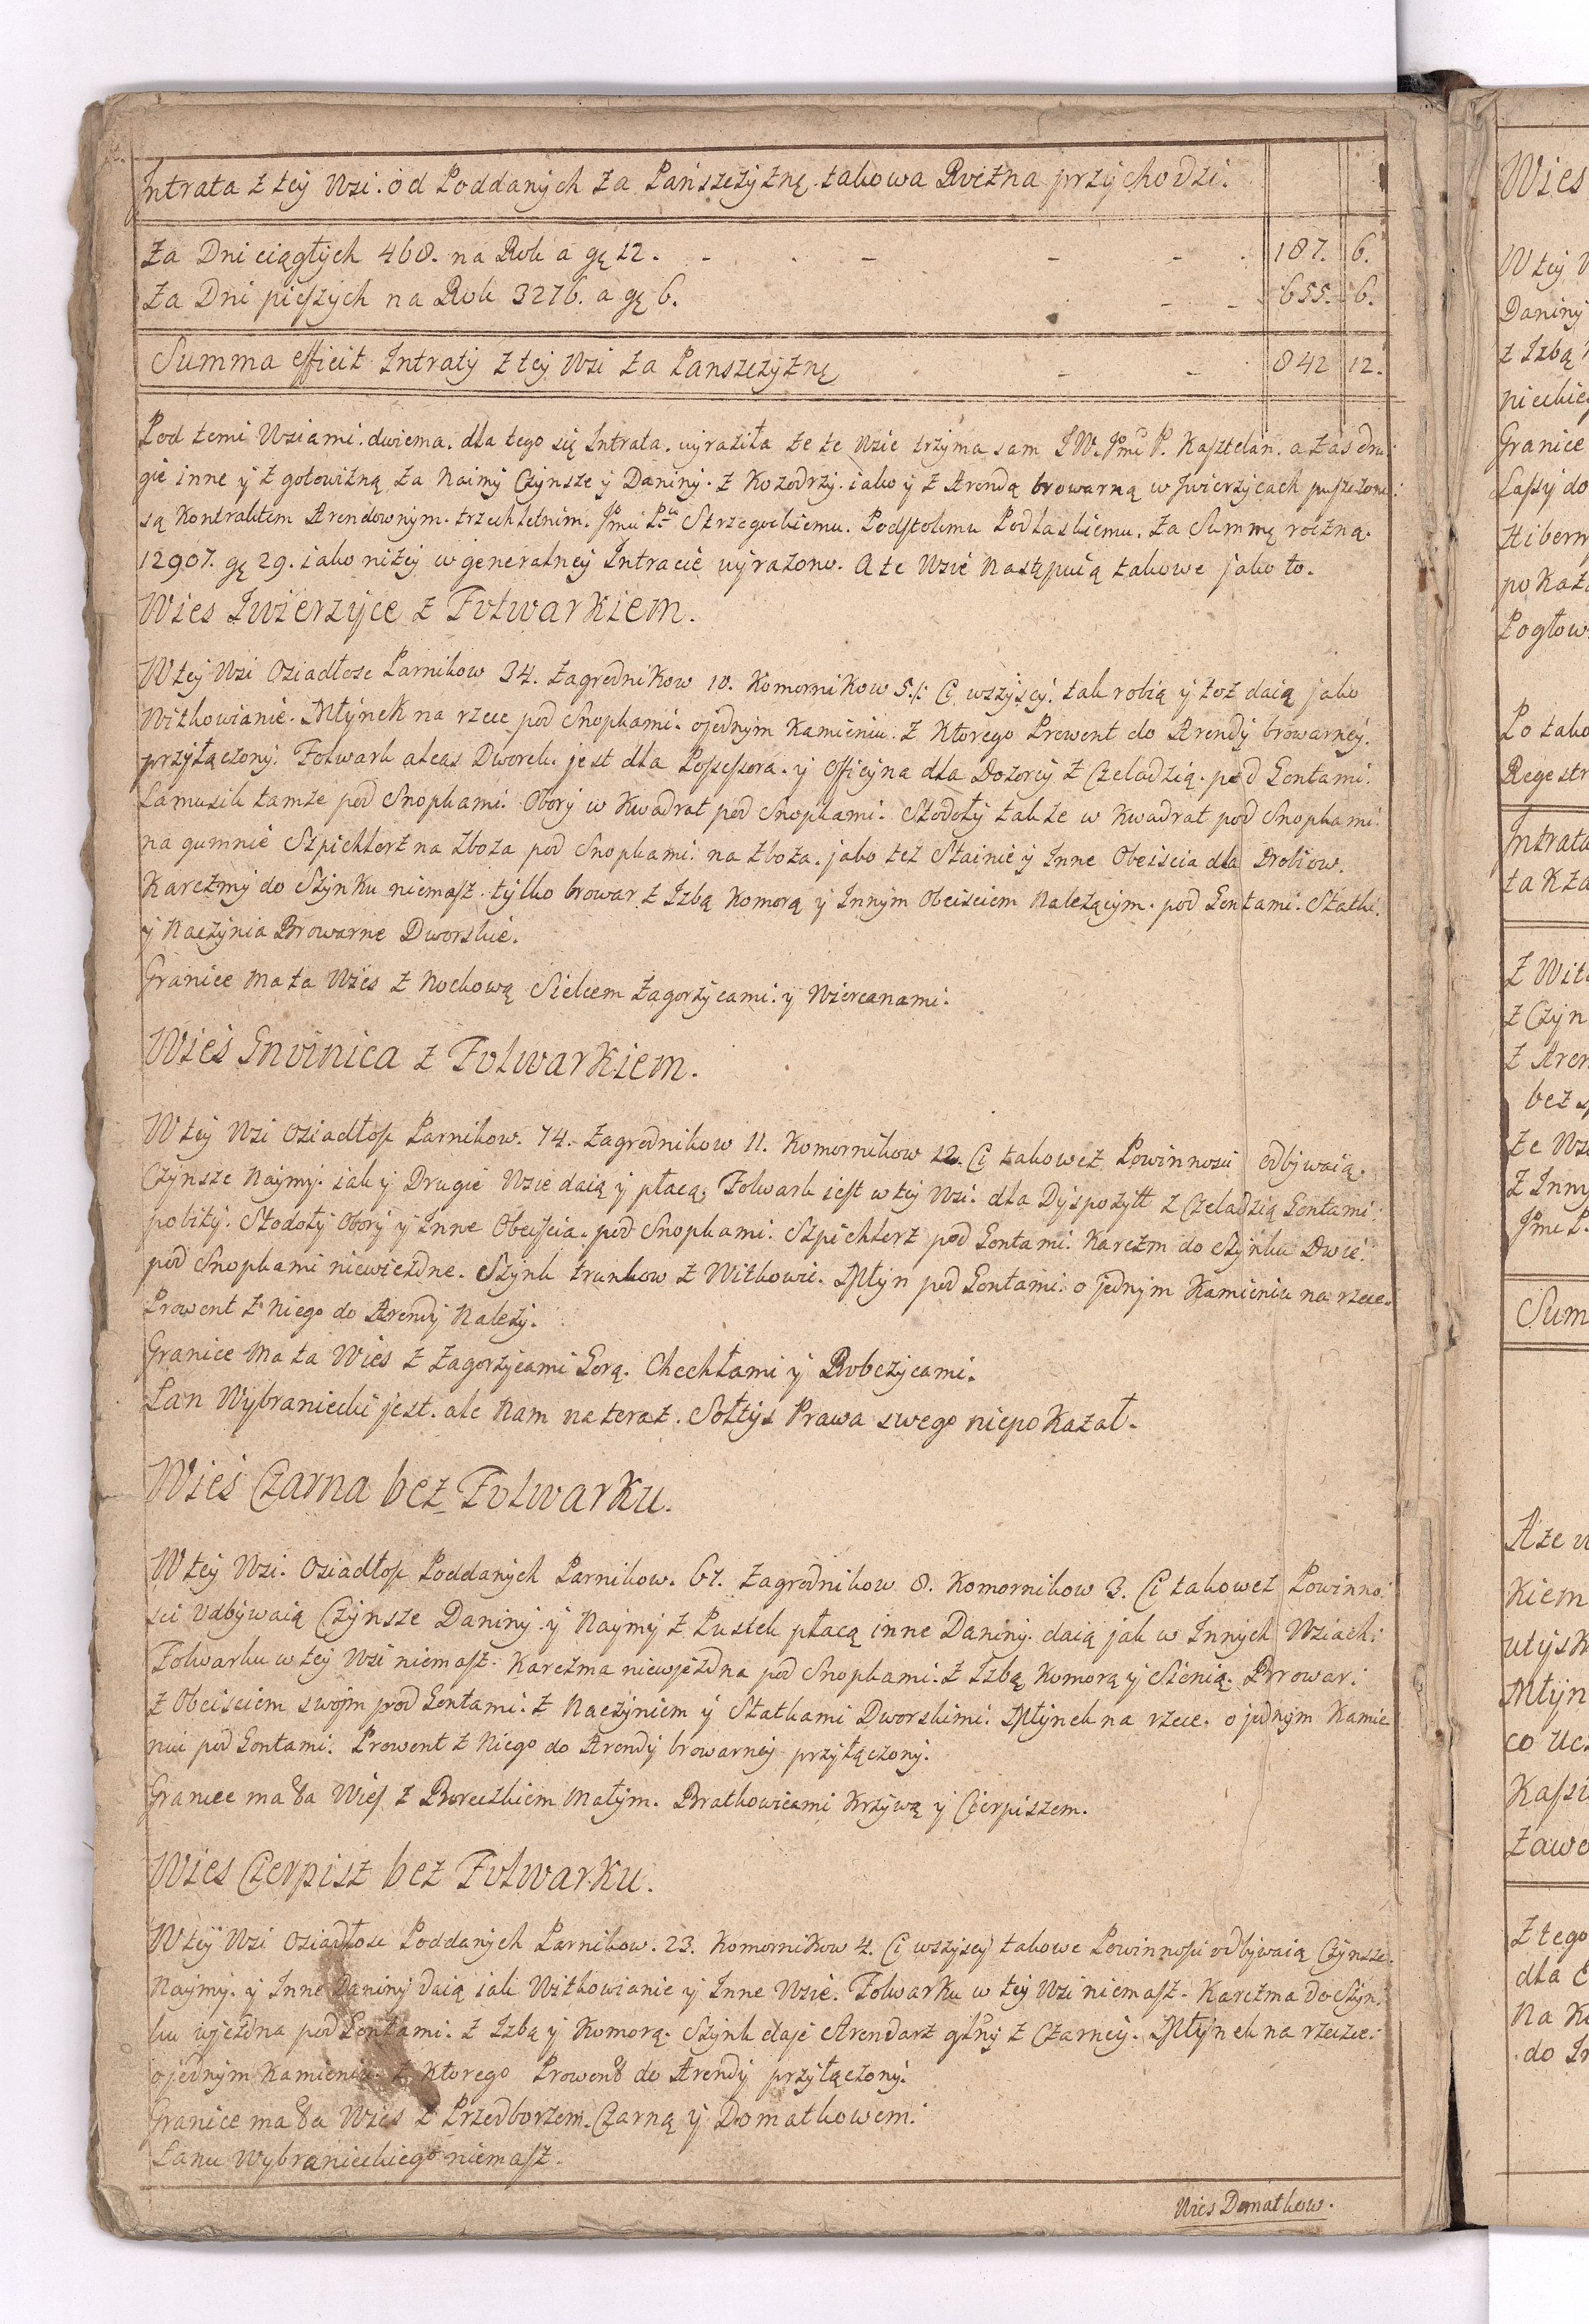 Intrata z tey Wsi. od Poddanych za Pańszczyznę. takowa Roczna przychodzi.
Za Dni ciągłych 468. na Rok a gę 12. 187. 6.
Za Dni pieszych na Rok 3276. a gę 6. 655. 6.
Summa efficit Intraty z tey Wsi za Panszczyznę 842 12.
Pod temi Wsiami. dwiema. dla tego się Intrata. wyraziła że te Wsie trzyma sam JW. Jmć P. Kasztelan. a zas dru
gie inne y z gotowizną za Naimy Czynsze y Daniny. z Kozodrzy. iako y z Arendą browarną w Jwierzycach puszczone
są Kontraktem Arendownym. trzechletnim. Jmci Pu Strzegockiemu. Podstolemu Podlaskiemu. za Summę roczną.
12907. gę 29. iako niżey w generalney Intracie wyrażono. A te Wsie Następuią takowe jako to.
Wies Iwierzyce z Folwarkiem.
W tey Wsi Osiadłosc Parnikow 34. Zagrodnikow 10. Komornikow 5./: Ci wszyscy. tak robią y toż daią jako
Witkowianie. Młynek na rzece pod Snopkami. o jednym Kamieniu. z Ktorego Prowent do Arendy browarney.
przyłączony. Folwark alias Dworek. jest dla Possessora. y Officyna dla Dozorcy z Czeladzią. pod Gontami.
Lamusik tamże pod Snopkami. Obory w Kwadrat pod Snopkami. Stodoły także w Kwadrat pod Snopkami.
na gumnie Szpichlerz na zboża pod Snopkami. na zboża. jako też Stainie y Inne Obeiscia dla Drobiow.
Karczmy do Szynku niemasz. tylko browar z Izbą Komorą y Innym Obeisciem Należącym. pod Gontami. Statki.
y Naczynia Browarne Dworskie.
Granice ma ta Wies z Nockową Sielcem Zagorzycami. y Wiercanami.
Wieś Gnoinica z Folwarkiem.
W tey Wsi Osiadłosc Parnikow. 74. Zagrodnikow 11. Komornikow 12. Ci takoweż Powinnosci odbywaią.
Czynsze Naymy. iak y Drugie Wsie daią y płacą. Folwark iest w tey Wsi. dla Dyspozytt z Czeladzią Gontami.
pobity. Stodoły Obory y Inne Obeiscia. pod Snopkami. Szpichlerz pod Gontami. Karczm do Szynku Dwie.
pod Snopkami niewiezdne. Szynk trunkow z Witkowic. Młyn pod Gontami. o jednym Kamieniu na rzece.
Prowent z Niego do Arendy Należy.
Granice ma ta Wies z Zagorzycami Gorą. Chechłami y Robczycami.
Lan Wybraniecki jest. ale Nam na teraz. Sołtys Prawa swego niepokazał.
Wieś Czarna bez Folwarku.
W tey Wsi. Osiadłosc Poddanych Parnikow. 67. Zagrodnikow 8. Komornikow 3. Ci takoweż Powinno
sci odbywaią Czynsze Daniny. y Naymy z Pustek płacą inne Daniny. daią jak w Innych Wsiach.
Folwarku w tey Wsi niemasz. Karczma niewjezdna pod Snopkami. z Izbą Komorą y Sienią. Browar.
z Obeisciem swoim pod Gontami. z Naczyniem y Statkami Dworskimi. Młynek na rzece. o jednym Kamie
niu pod Gontami. Prowent z Niego do Arendy browarney przyłączony.
Granice ma ta Wies z Boreczkiem Małym. Bratkowicami Krzywą y Cierpiszem.
Wies Cierpisz bez Folwarku.
W tey Wsi Osiadłosc Poddanych Parnikow. 23. Komornikow 4. Ci wszyscy takowe Powinnosci odbywaią Czynsze.
Naymy. y Inne Daniny Daią iak Witkowianie y Inne Wsie. Folwarku w tey Wsi niemasz. Karczma do Szyn
ku wjezdna pod Gontami. z Izbą y Komorą. Szynk daje Arendarz głny z Czarney. Młynek na rzecze.
o jednym Kamieniu. z Ktorego Prowent do Arendy przyłączony.
Granice ma ta Wies z Przedborzem. Czarną y Domatkowem.
Lanu Wybranieckiego niemasz.
Wies Domatkow.